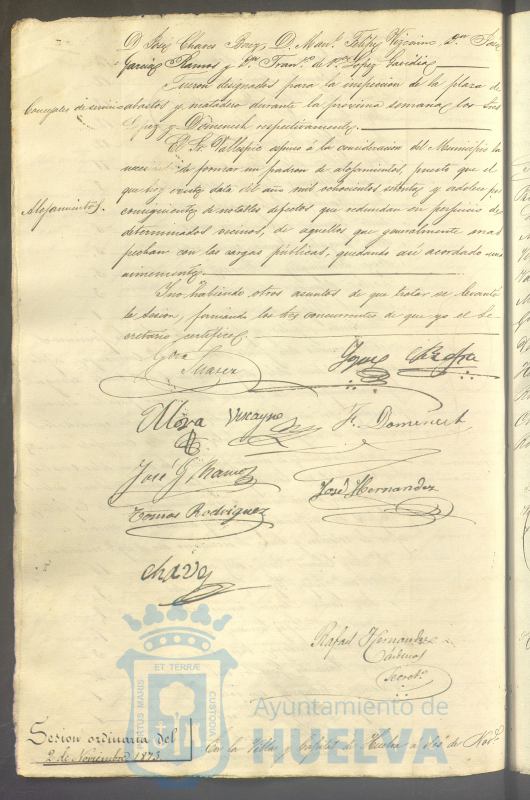 D. José Chaves Borez, D. Man.l Felipe Vizcaino, D.n José
García Ramos y D.n Fran.co de P. Lopez Gavidia
Fueron designados para la inspeccion de la plaza de
Concejales de servicio
abastos y matadero durante la próxima semana los Sres
Lopez y Domenech respectivamente.
El Sr. Vallespin espuso á la consideración del Municipio la
necesidad de formar un padron de alojamientos, puesto que el
que hoy existe data del año mil ochocientos setenta y adolece por
Alojamientos.
consiguiente de notables defectos que redundan en perjuicio de
determinados vecinos, de aquellos que generalmente mas
pechan con las cargas públicas, quedando así acordado una
nimemente.
Y no habiendo otros asuntos de que tratar se levantó
la sesion, firmando los Sres concurrentes de que yo el Se
cretario certifico.
Mora Vizcayno F. Domenech
José G. Ramos
José Hernandez
Tomas Rodriguez
Chaves
Rafael Hernandez
Cárdenas
Secret.o
PORTUS MARIS ET TERRÆ CUSTODIA
Ayuntamiento de
HUELVA
Sesion ordinaria del
2 de Noviembre 1873.
En la Villa y Capital de Huelva a dos de Nov.e